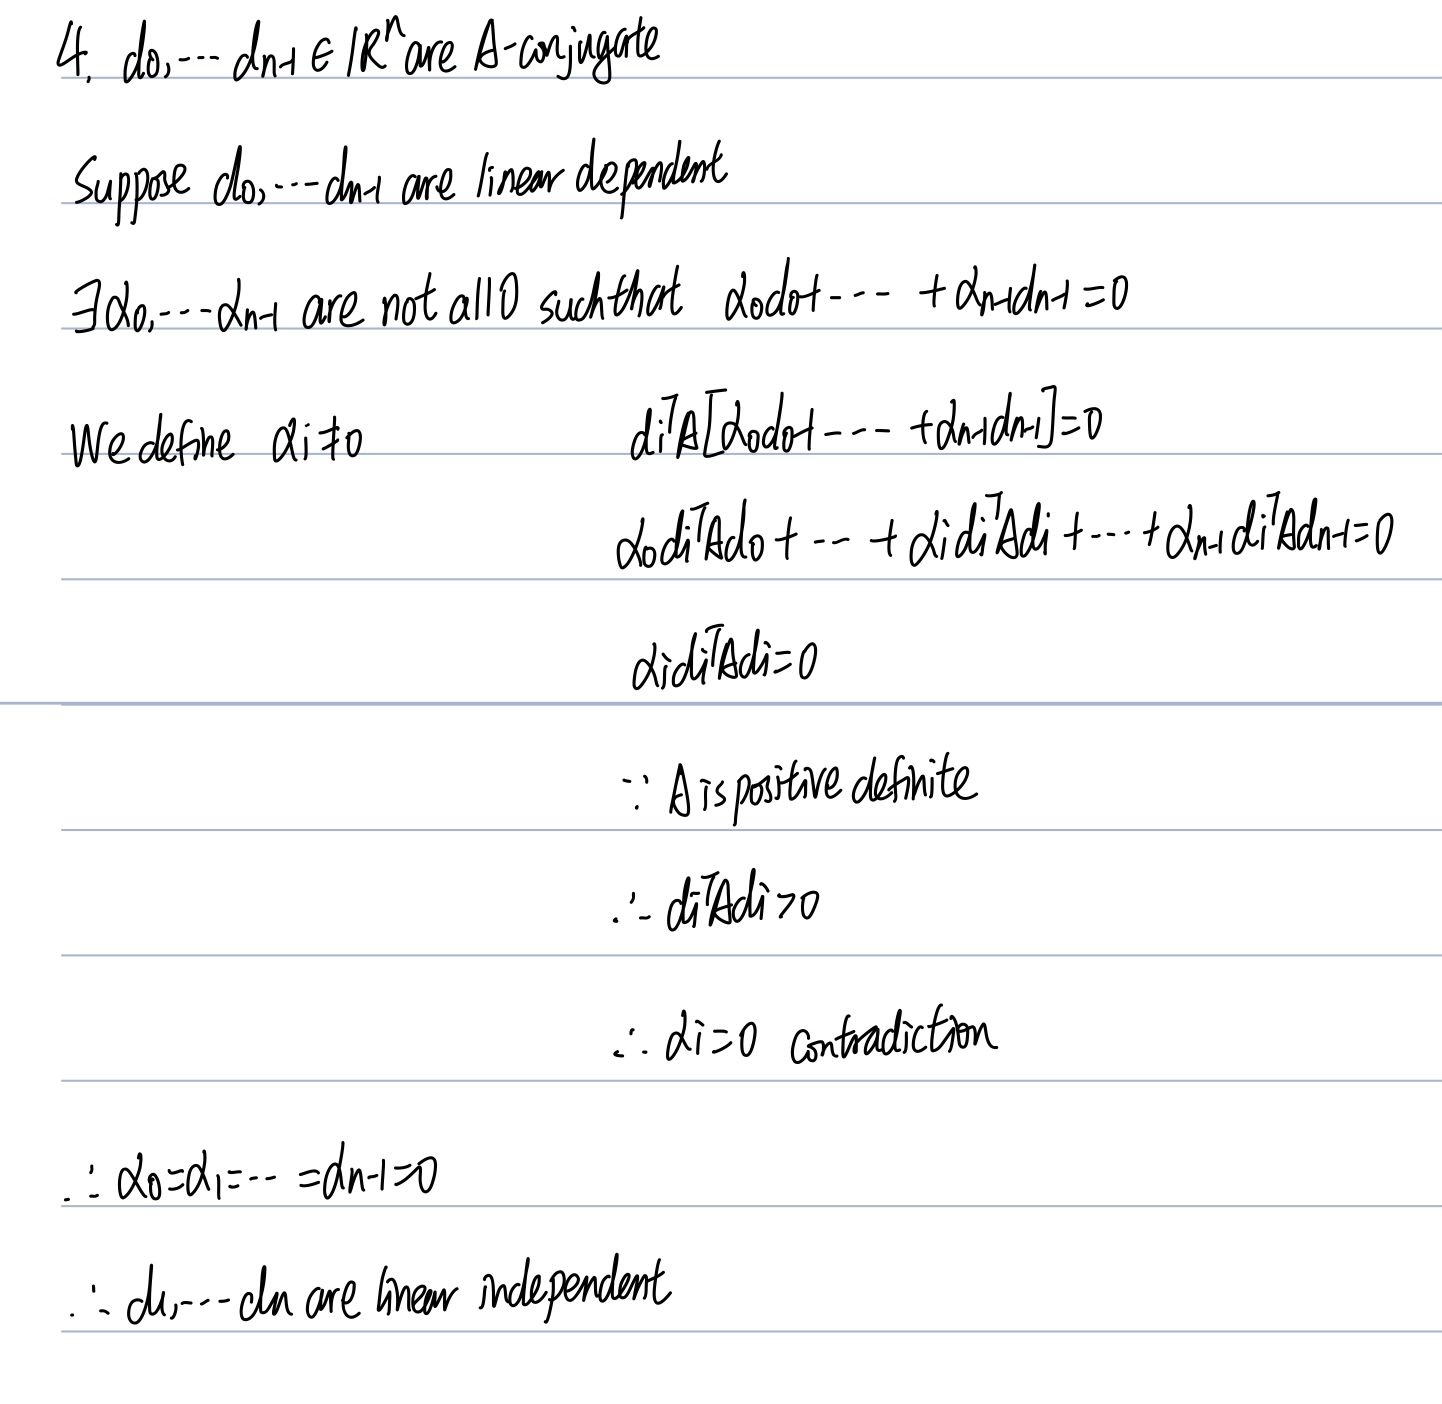 4. d₀,··· dₙ₋₁ ∈ ℝⁿ are A-conjugate
Suppose d₀,··· dₙ₋₁ are linear dependent
∃α₀,··· αₙ₋₁ are not all 0 such that α₀d₀+ ··· + αₙ₋₁dₙ₋₁ = 0
We define αi ≠ 0 diᵀA[α₀d₀+ ··· + αₙ₋₁dₙ₋₁] = 0
α₀diᵀAd₀ + ··· + αidiᵀAdi + ··· + αₙ₋₁diᵀAdₙ₋₁ = 0
αidiᵀAdi = 0
∵ A is positive definite
∴ diᵀAdi > 0
∴ αi = 0 contradiction
∴ α₀ = α₁ = ··· = αₙ₋₁ = 0
∴ d₁,··· dn are linear independent